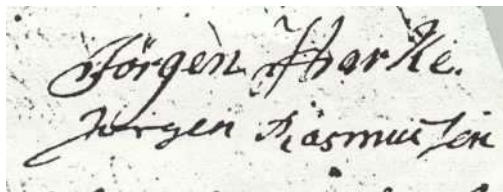 Jörgen Tharke.
Jürgen Rasmussen